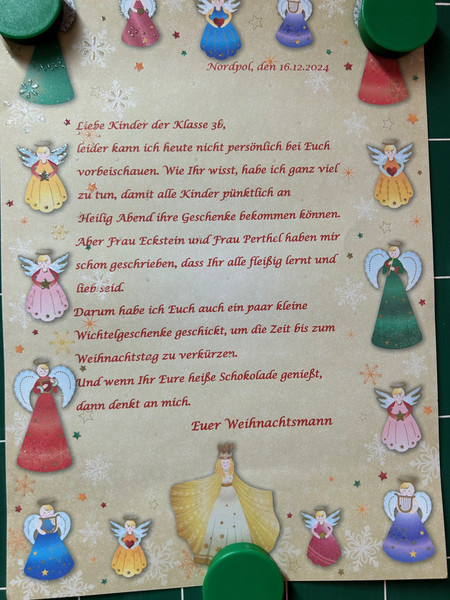 Nordpol, den 16.12.2024
Liebe Kinder der Klasse 3b,
leider kann ich heute nicht persönlich bei Euch
vorbeischauen. Wie Ihr wisst, habe ich ganz viel
zu tun, damit alle Kinder pünktlich an
Heilig Abend ihre Geschenke bekommen können.
Aber Frau Eckstein und Frau Perthel haben mir
schon geschrieben, dass Ihr alle fleißig lernt und
lieb seid.
Darum habe ich Euch auch ein paar kleine
Wichtelgeschenke geschickt, um die Zeit bis zum
Weihnachtstag zu verkürzen.
Und wenn Ihr Eure heiße Schokolade genießt,
dann denkt an mich.
Euer Weihnachtsmann